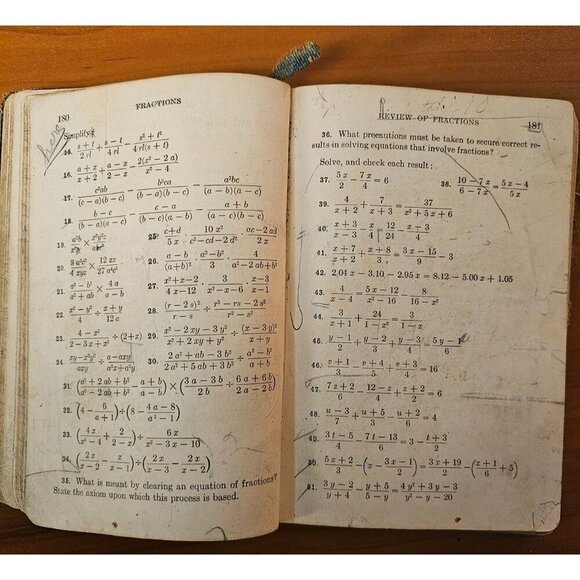 180
FRACTIONS
here
Simplify:
16. (a+x)/(x+2) + (a−x)/(x−2) − 2(x²−2a)/(x²−4)
17. c²ab/((c−a)(b−c)) − b²ca/((b−a)(b−c)) − a²bc/((a−b)(a−c))
18. (b−c)/((b−a)(a−c)) − (c−a)/((b−c)(b−a)) − (a+b)/((a−c)(b−c))
21. (a²−b²)/(a²+ab) × 4a/(a−b)
22. (x²−y²)/4 ÷ (x+y)/(12a)
23. (4−x²)/(2−3x+x²) ÷ (2+x)
24. (xy−x²y²)/(axy) ÷ (a−axy)/(a²x+a²y)
25. (c+d)/(5x) · 10x²/(c²−cd−2d²) · (ac−2ad)/(2x)
26. (a−b)/(a+b)² · (a²−b²)/3 · 4/(a²−2ab+b²)
27. (x²+x−2)/(4x−12) · 3/(x²−x−6) · (x−3)/(x−1)
28. (r−2s)²/(r−s) ÷ (r²−rs−2s²)/(r²−s²)
29. (x²−2xy−3y²)/(x²+2xy+y²) ÷ (x−3y)²/(x+y)
30. (2a²+ab−3b²)/(2a²+5ab+3b²) ÷ (a²−b²)/(a+b)
31. ((a²+2ab+b²)/(a²−2ab+b²) ÷ (a+b)/(a−b)) × ((3a−3b)/(2b) ÷ (6a+6b)/(2a−2b))
32. (4 − 6/(a+1)) ÷ (8 − (4a−8)/(a²−1))
33. (4x/(x²−4) + 2/(2−x)) ÷ 6x/(x²−3x−10)
34. (2x/(x−2) − x/(x−1)) ÷ (2x/(x−3) − 2x/(x−2))
35. What is meant by clearing an equation of fractions?
State the axiom upon which this process is based.
REVIEW OF FRACTIONS
181
36. What precautions must be taken to secure correct re-
sults in solving equations that involve fractions?
Solve, and check each result:
37. 5x/2 − 7x/4 = 6
38. (10−7x)/(6−7x) = (5x−4)/(5x)
39. 4/(x+2) + 7/(x+3) = 37/(x²+5x+6)
40. (x+3)/4 − x/12 = 12/24 − (x−3)/4
41. (x+7)/2 + (x+8)/3 = (3x−15)/9 − 3
42. 2.04x − 3.10 − 2.95x = 8.12 − 5.00x + 1.05
43. 4/(x−4) = (5x−12)/(x²−16) − 8/(16−x²)
44. 3/(x+1) + 24/(1−x²) = 3/(1−x)
45. (y−1)/2 + (y−2)/3 + (y−3)/4 = (5y−1)/6
46. (v+1)/3 + (v+4)/5 + (v+3)/4 = 16
47. (7z+2)/6 − (12−z)/4 + (z+2)/2 = 6
48. (u−3)/7 + (u+5)/3 − (u+2)/6 = 4
49. (3t−5)/4 − (7t−13)/6 = 3 − (t+3)/2
50. (5x+2)/3 − (x − (3x−1)/2) = (3x+19)/2 − ((x+1)/6 + 5)
51. (3y−2)/(y+4) − (y+5)/(y−5) = (4y²+3y−3)/(y²−y−20)